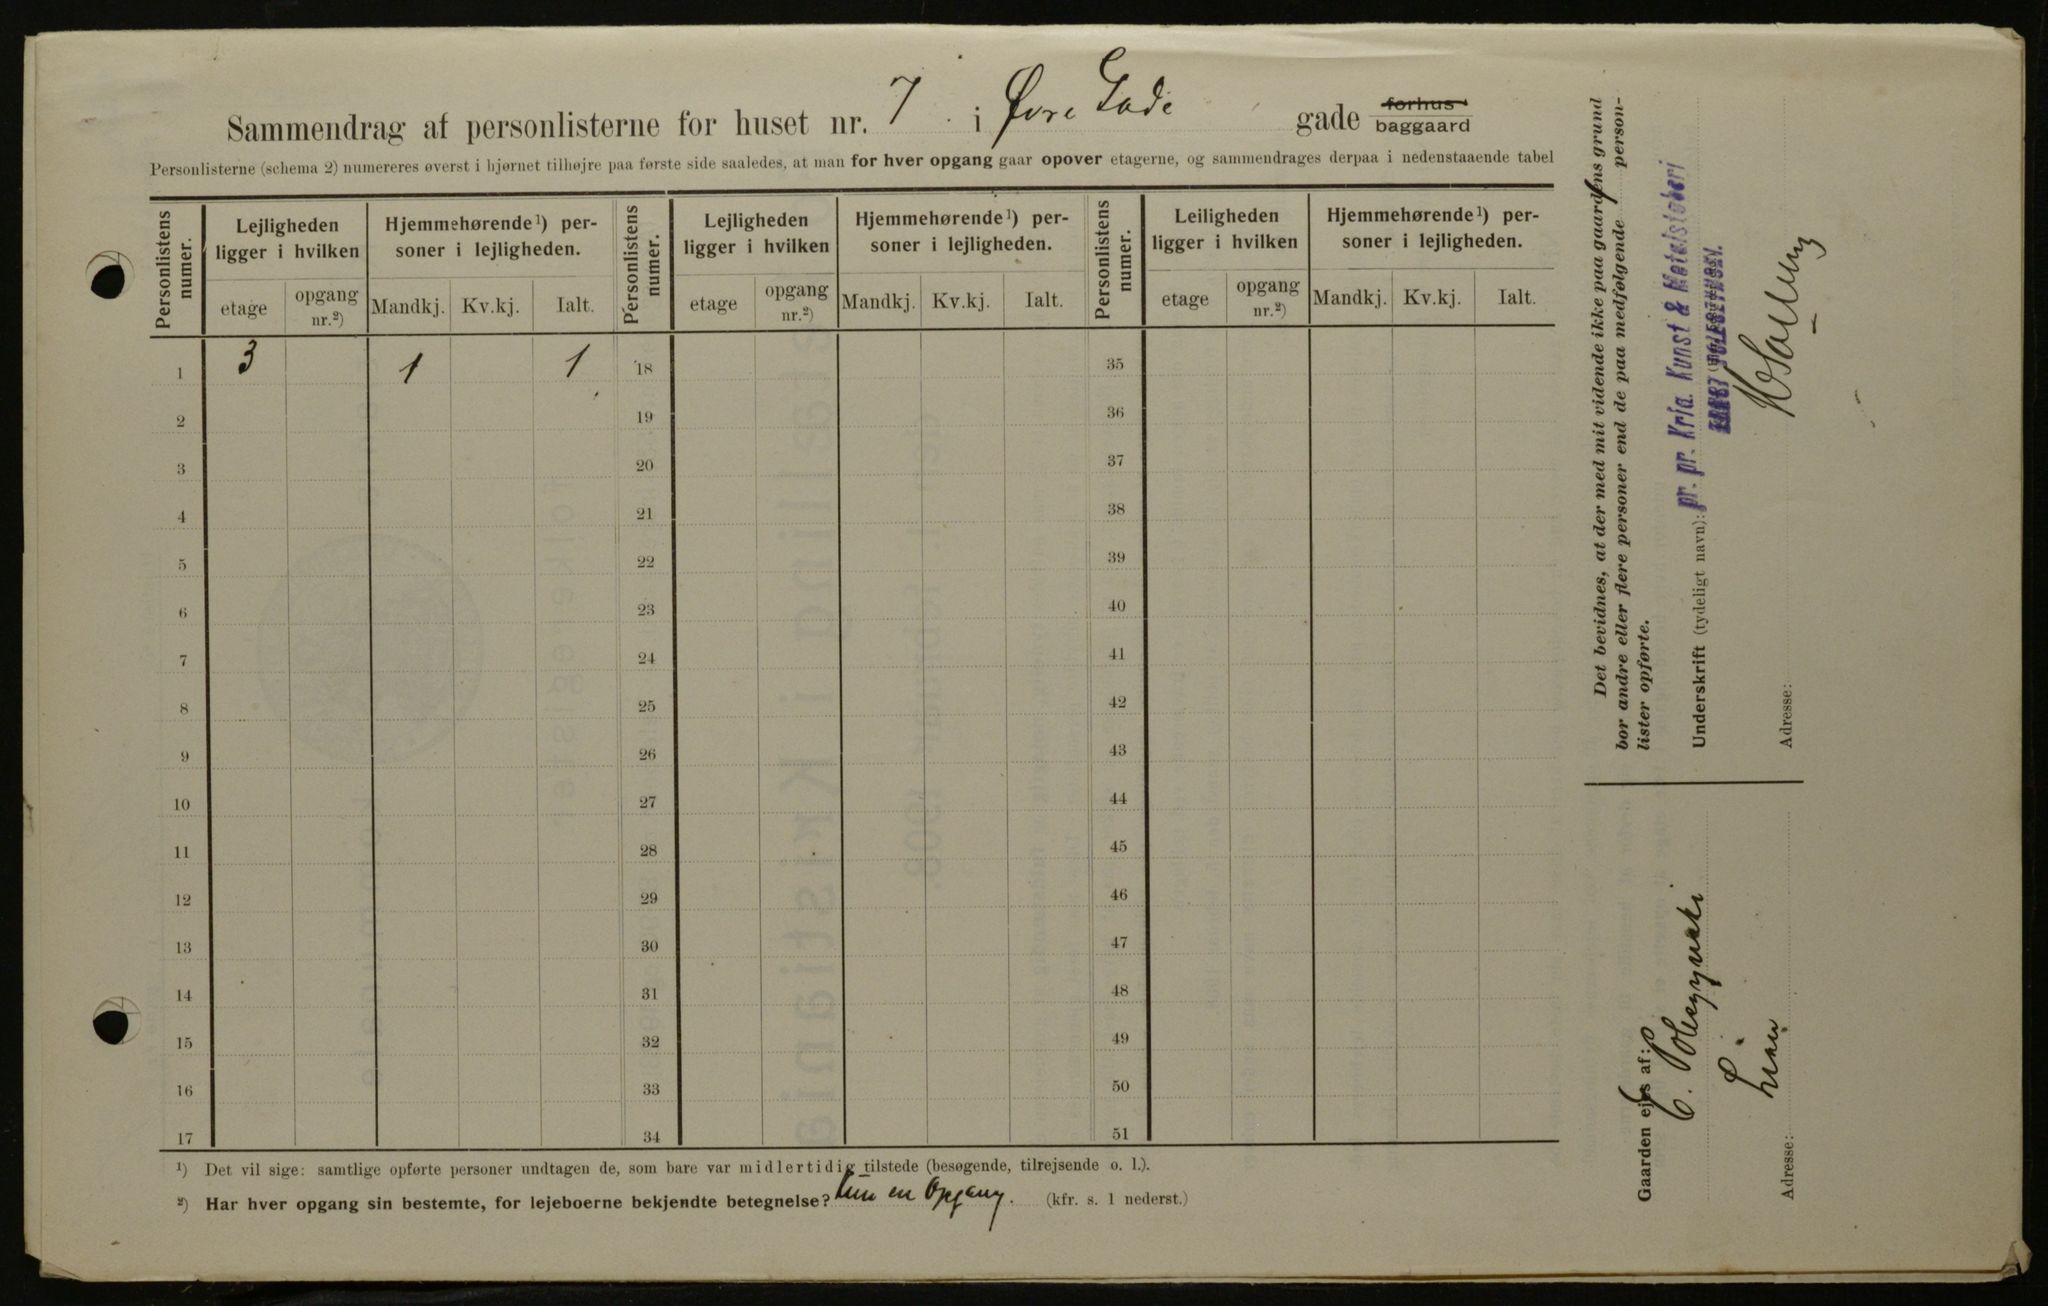 Sammendrag af personlisterne for huset nr. 7 i Øvre Gade gade forhus baggaard
Personlisterne (schema 2) numereres øverst i hjørnet tilhøjre paa første side saaledes, at man for hver opgang gaar opover etagerne, og sammendrages derpaa i nedenstaaende tabel
Personlistens numer. Lejligheden ligger i hvilken Hjemmehørende 1) personer i lejligheden. Personlistens numer. Lejligheden ligger i hvilken Hjemmehørende 1) personer i lejligheden. Personlistens numer. Leiligheden ligger i hvilken Hjemmehørende 1) personer i lejligheden.
etage opgang nr. 2) Mandkj. Kv.kj. Ialt. etage opgang nr. 2) Mandkj. Kv.kj. Ialt. etage opgang nr. 2) Mandkj. Kv.kj. Ialt.
1 3 1 1 18 35
2 19 36
3 20 37
4 21 38
5 22 39
6 23 40
7 24 41
8 25 42
9 26 43
10 27 44
11 28 45
12 29 46
13 30 47
14 31 48
15 32 49
16 33 50
17 34 51
1) Det vil sige: samtlige opførte personer undtagen de, som bare var midlertidig tilstede (besøgende, tilrejsende o. l.).
2) Har hver opgang sin bestemte, for lejeboerne bekjendte betegnelse? Kun en Opgang. (kfr. s. 1 nederst.)
Det bevidnes, at der med mit vidende ikke paa gaardens grund
bor andre eller flere personer end de paa medfølgende 1 person-
lister opførte.
Underskrift (tydeligt navn): pr. pr. Kria. Kunst & Metalstøberi
Adresse:
Gaarden ejes af: C.
Adresse: